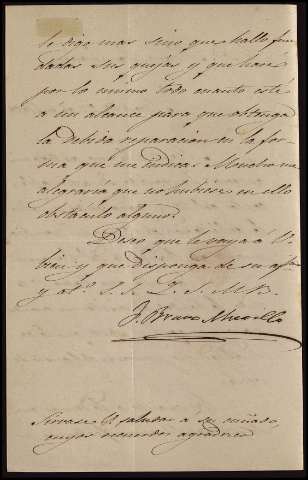 le digo mas sino que hallo fun
dadas sus quejas y que haré
por lo mismo todo cuanto esté
a mi alcance para que obtenga
la debida reparacion en la for
ma que me indica. Mucho me
alegraria que no hubiese en ello
obstáculo alguno.
Deseo que le vaya á V.
bien y que disponga de su af.
y at.º S. S. Q. S. M. B.
J. Bravo Murillo
Sirvase V. saludar a su cuñado,
cuyos recuerdos agradezco